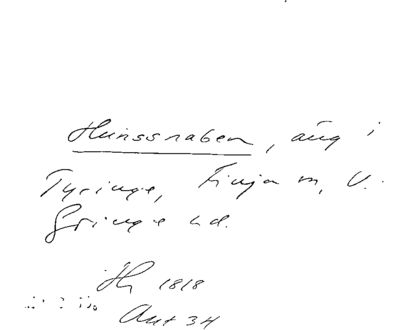 Hunssnaben, äng i
Tyringe, Finja sn, V.
Göinge hd.
1818
Akt 34